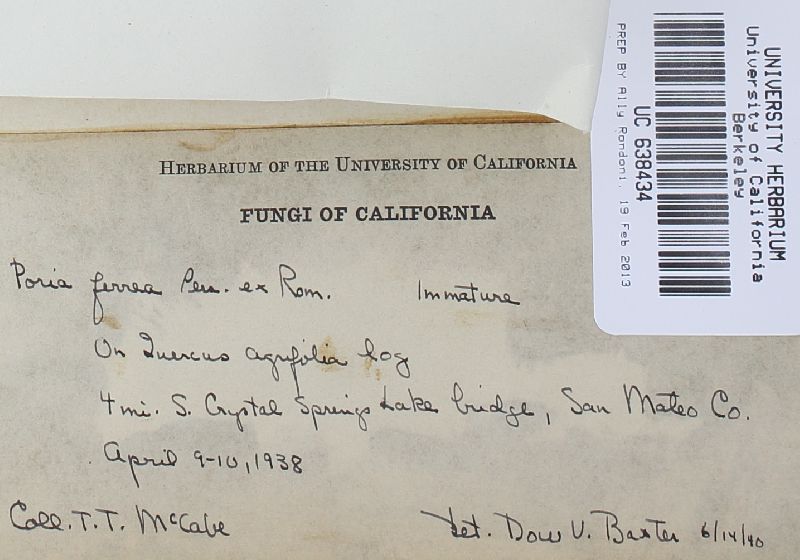 HERBARIUM OF THE UNIVERSITY OF CALIFORNIA
FUNGI OF CALIFORNIA
Poria ferrea Pers. ex Rom. Immature
On Quercus agrifolia log
4 mi. S. Crystal Springs Lake bridge, San Mateo Co.
April 9-10, 1938
Coll. T. T. McCabe Det. Dow V. Baxter 6/14/40
UNIVERSITY HERBARIUM
University of California
Berkeley
UC 638434
PREP BY Ally Rondoni, 19 Feb 2013